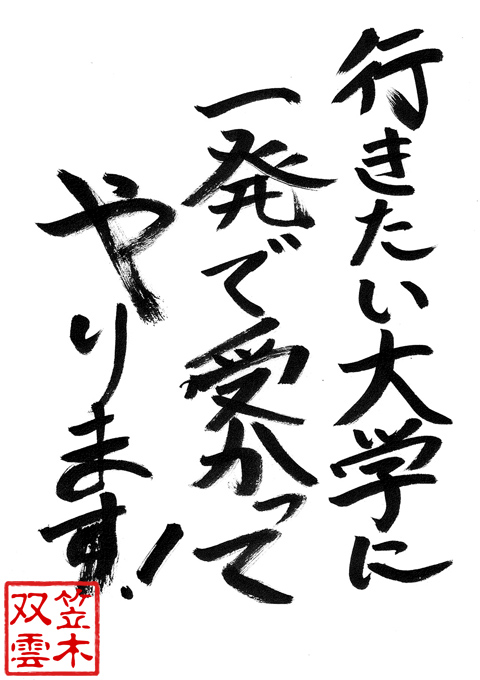 行きたい大学に
一発で受かって
やります!
笠木
双雲